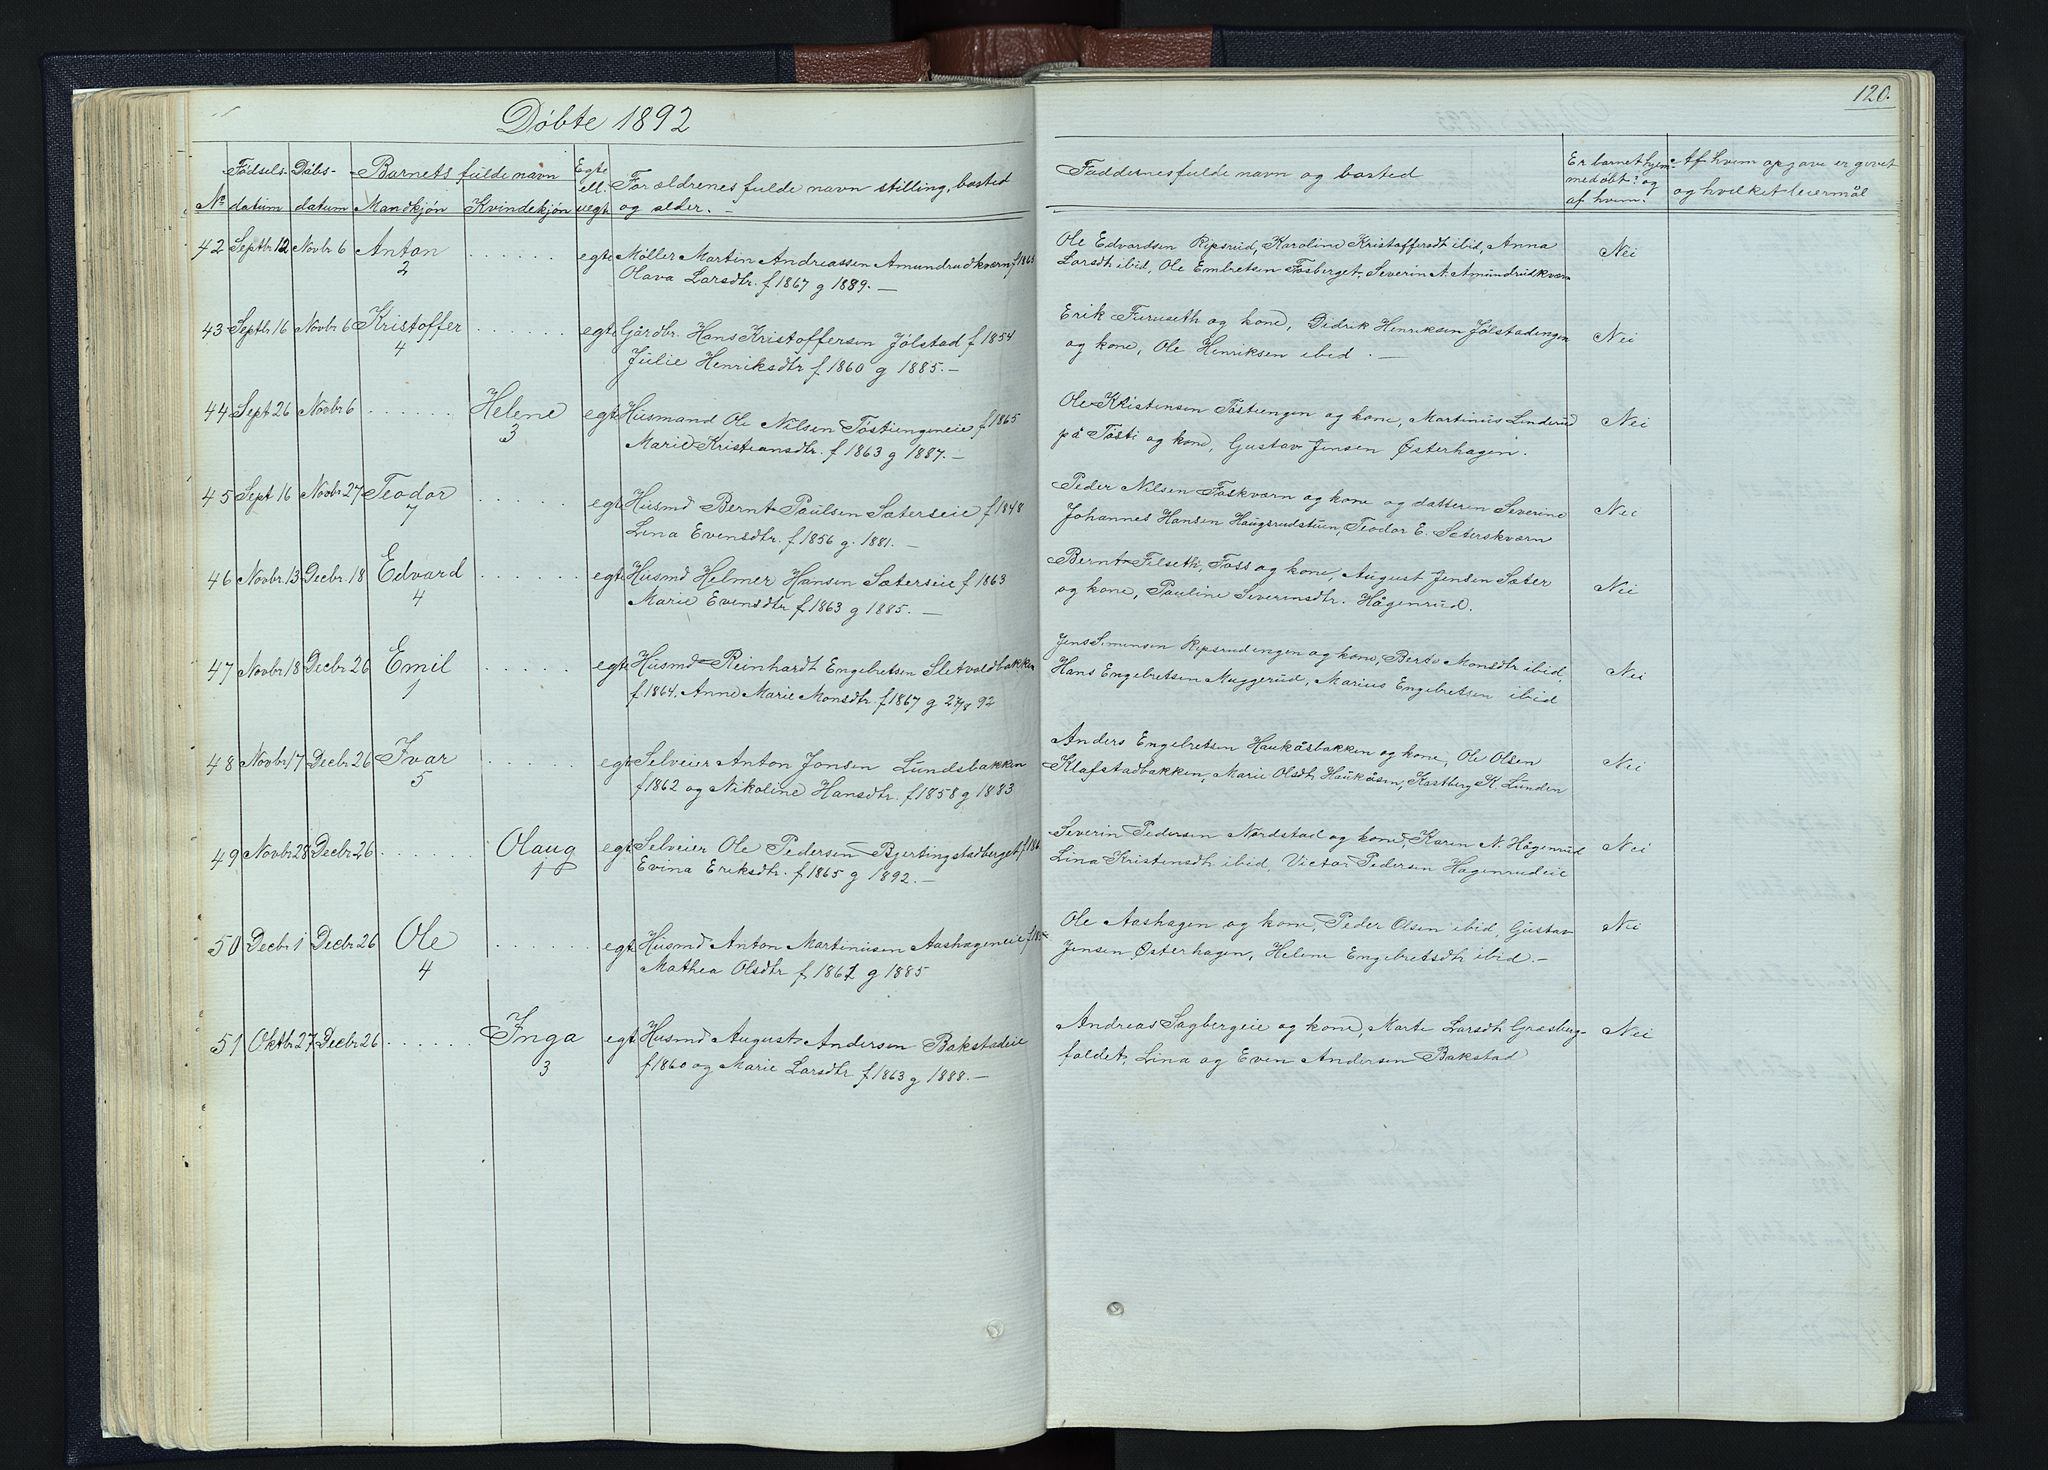 Døbte 1892
120.
No Fødselsdatum Døbsdatum Barnets fulde navn Mandkjøn Kvindekjøn Egte ell. uegt. Forældrenes fulde navn stilling, bosted og alder. —
Faddernes fulde navn og bosted
Er barnet hjemmedøbt? og af hvem?
Af hvem opgave er givet og hvilket leiermål
42 Septbr 12 Novbr 6 Anton egte Møller Martin Andreassen Amundrudkværn f 1863
2 Olava Larsdtr. f 1867 g 1889. —
Ole Edvardsen Ripsrud, Karoline Kristoffersdt ibid, Anna Nei
Larsdt ibid, Ole Embretsen Fosberget, Severin A. Amundrudkværn
43 Septbr 16 Novbr 6 Kristoffer egte Gårdbr. Hans Kristoffersen Jølstad f 1854
4 Julie Henriksdtr f 1860 g 1885. —
Erik Furuseth og kone, Didrik Henriksen Jølstadengen Nei
og kone, Ole Henriksen ibid. —
44 Sept 26 Novbr 6 Helene egt Husmand Ole Nilsen Tøstiengeneie f 1865
3 Marie Kristiansdtr. f 1863 g 1887. —
Ole Kristensen Tøstiengen og kone, Martinus Linderud Nei
på Tøsti og kone, Gustav Jensen Østerhagen.
45 Sept 16 Novbr 27 Teodor egt Husmd Bernt Paulsen Sæterseie f 1848
7 Lina Evensdtr. f 1856 g. 1881. —
Peder Nilsen Foskværn og kone og datteren Severine Nei
Johannes Hansen Haugsrudstuen, Teodor E. Sæterskværn
46 Novbr. 13 Decbr. 18 Edvard egt Husmd Helmer Hansen Sæterseie f 1863
4 Marie Evensdtr f 1863 g 1885. —
Bernt Filseth, Foss og kone, August Jensen Sæter Nei
og kone, Pauline Severinsdtr. Hågenrud.
47 Novbr 18 Decbr 26 Emil egt Husmd Reinhardt Engebretsen Sletvoldbakken
1 f 1864. Anne Marie Monsdtr f 1867 g 27/8 92
Jens Simensen Ripsrudengen og kone, Berte Monsdtr ibid, Nei
Hans Engebretsen Muggerud, Marius Engebretsen ibid
48 Novbr 17 Decbr 26 Ivar egt Selveier Anton Jonsen Lundsbakken
5 f 1862 og Nikoline Hansdtr. f 1858 g 1883
Anders Engebretsen Haukåsbakken og kone, Ole Olsen Nei
Klafstadbakken, Marie Olsdt Haukåsen, Kastberg K. Lunden
49 Novbr 28 Decbr 26 Olaug egt Selveier Ole Pedersen Bjertingstadberget f 186
1 Evina Eriksdtr. f 1865 g 1892. —
Severin Pedersen Nordstad og kone, Karen N. Hågenrud Nei
Lina Kristensdt ibid, Victor Pedersen Hågenrudeie
50 Decbr 1 Decbr 26 Ole egt Husmd Anton Martinusen Aashageneie
4 Mathea Olsdtr f 1861 g 1885
Ole Aashagen og kone, Peder Olsen ibid, Gustav Nei
Jensen Østerhagen, Helene Engebretsdt ibid. —
51 Oktbr 27 Decbr 26 Inga egt Husmd August Andersen Bakstadeie
3 f 1860 og Marie Larsdtr. f 1863 g 1888. —
Andreas Sagbergeie og kone, Marte Larsdt Græsberg- Nei
foldet, Lina og Even Andersen Bakstad